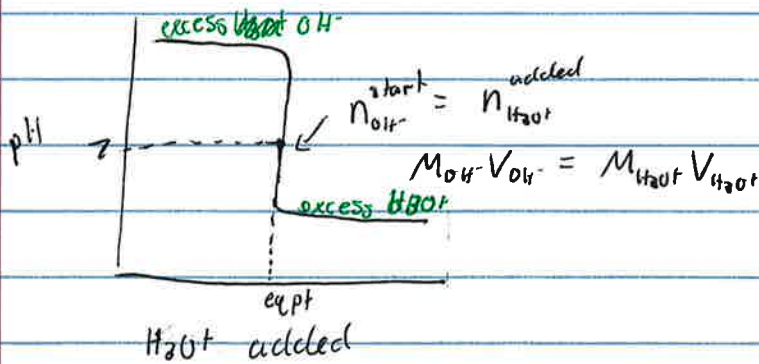 excess OH⁻
n_OH⁻^start = n_H₃O⁺^added
pH 7
M_OH⁻ V_OH⁻ = M_H₃O⁺ V_H₃O⁺
excess H3O⁺
eq pt
H₃O⁺ added